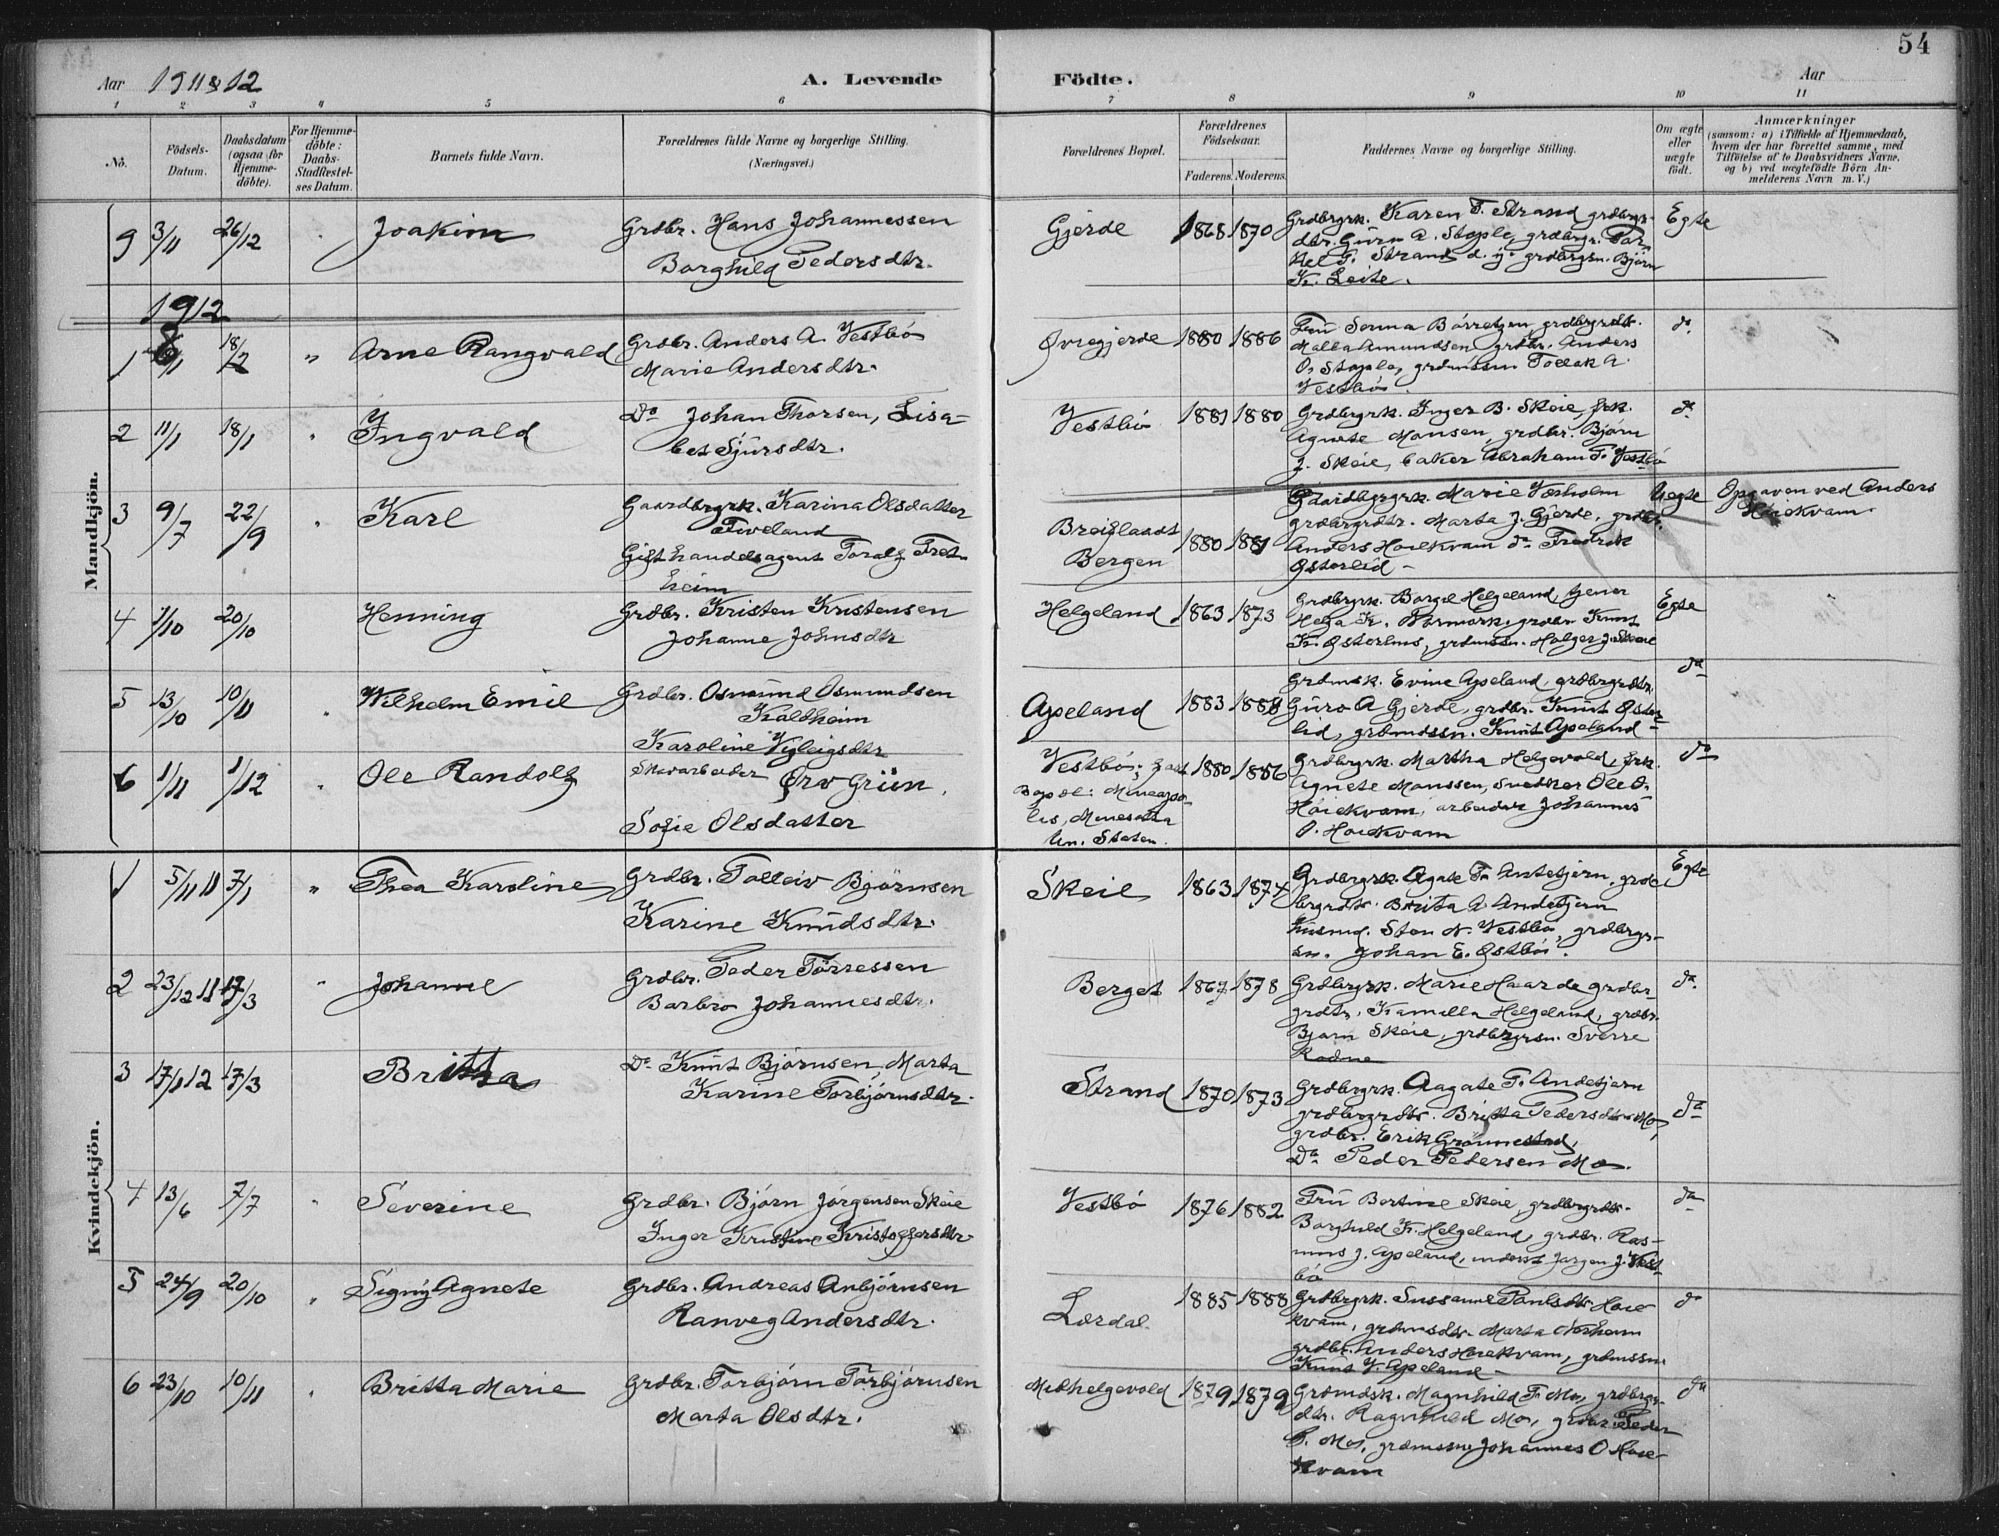 54
Aar 1911 & 12
A. Levende
Födte.
Aar
1 2 3 4 5 6 7 8 9 10 11
No.
Födsels-
Datum.
Daabsdatum
(ogsaa for
Hjemme-
döbte).
For Hjemme-
döbte:
Daabs-
Stadfæstel-
ses Datum.
Barnets fulde Navn.
Forældrenes fulde Navne og borgerlige Stilling.
(Næringsvei.)
Forældrenes Bopæl.
Forældrenes
Födselsaar.
Faderens. Moderens.
Faddernes Navne og borgerlige Stilling.
Om ægte
eller
uægte
födt.
Anmærkninger
(saasom: a) i Tilfælde af Hjemmedaab,
hvem der har forrettet samme, med
Tilföielse af to Daabsvidners Navne,
og b) ved uægtefödte Börn An-
melderens Navn m. V.)
Mandkjön.
9 3/11 26/12 " Joakim
Grdbr. Hans Johannessen
Borghild Pedersdtr.
Gjerde 1868 1870
Grdbrgrk. Karen T. Strand grdbrgr-
dtr. Guro A. Stople, grdbrgr. Tor-
kel T. Strand d. y. grdbrgsn. Björn
Kr. Leite.
Egte
1912
1 18/2 " Arne Rangvald
Grdbr. Anders A. Vestbö
Marie Andersdtr.
Øvregjerde 1880 1886
Fru Serina Börretzen, grdbrgrdtr.
Malla Amundsen grdbr. Anders
O. Stople, grdmssn Tollak A.
Vestbö.
do
2 11/1 18/1 " Ingvald
Do Johan Thorsen, Lisa-
bet Sjursdtr.
Vestbö 1881 1880
Grdbrgrk. Inger B. Skeie, frk.
Agnete Monsen, grdbr. Bjørn
J. Skeie, baker Abraham T. Vestbö
do
3 9/7 22/9 " Karl
Gaardbrgrk. Karina Olsdatter
Tveland
Gift handelsagent Toralf Tret-
heim
Breiflaadt
Bergen 1880 1881
Gaardbrgrk. Marie Vesholm
grdbrgrdtr. Marta J. Gjerde, grdbr.
Anders Hoiekvam do Fredrik
Østerlid -
Uegte
Opgaven ved Anders
Hoiekvam.
4 7/10 20/10 Henning
Grdbr. Kristen Kristensen
Johanne Johnsdtr
Helgeland 1863 1873
Grdbrgrk. Borgil Helgeland, tjener
Helga Kr. grdbr Knut
Kr. grdmssn. Holger J. Skeie
Egte
5 13/10 10/11 " Wilhelm Emil
Grdbr. Osmund Osmundsen
Kaltheim
Karoline Vigleigsdtr
Apeland 1883 1888
Grdmsk. Evine Apeland, grdbrgrdtr.
Guro A Gjerde, grdbr. Knut Øster-
lid, grdmssn. Knut Apeland -
do
6 1/11 1/12 " Ole Randolf
Skovarbeider Ørv Grün.
Sofie Olsdatter
Vestbö; fast
Bopæl: Mineapo-
lis, Minesotta
Un. Staten. 1880 1886
Grdbrgrk. Martha Helgevold, frk.
Agnete Monssen, snedker Ole O.
Höiekvam, arbeider Johannes
O. Hoiekvam
do
Kvindekjön.
1 5/11 11 7/1 " Thea Karoline
Grdbr. Tolleiv Björnsen
Karine Knudsdtr.
Skeie 1863 1874
Grdbrgrk. Agate T. Antetjern, grd-
brgrdtr. Brita A. Andetjern
husmd. Sten N. Vestbö, grdbrgr-
sn. Johan E. Østbö.
Egte
2 23/12 11 17/3 " Johanne
Grdbr. Peder Törressen
Barbro Johannesdtr.
Berget 1867 1878
Grdbrgrk. Marie Haarde grdbr-
grdtr. Kamilla Helgeland, grdbr.
Bjørn Skeie, grdbrgrsn. Sverre
Rodne
do
3 17/1 12 17/3 Britta
Do Knut Björnsen, Marta
Karine Torbjörnsdtr.
Strand 1870 1873
Grdbrgrk. Aagate T. Andetjern
grdbrgrdtr. Britta Pedersdtr Mo,
grdbr. Erik Grönnestad,
Do Peder Petersen Mo.
do
4 13/6 7/7 " Severine
Grdbr. Bjørn Jörgensen Skeie
Inger Kristine Kristoffersdtr.
Vestbö 1876 1882
Fru Bertine Skeie, grdbrgrdtr.
Borghild Kr. Helgeland, grdbr. Ras-
mus J. Apeland, inderst Jørgen J. Vest-
bö
do
5 24/9 20/10 " Signy Agnete
Grdbr. Andreas Anbjörnsen
Ranveg Andersdtr.
Lærdal 1885 1888
Grdbrgrk. Susanne Paulsdtr. Hoie-
kvam, grdmsdtr. Marta Norheim
grdbr. Anders Hoiekvam, grdmssn
Knut V. Apeland -
do
6 23/10 10/11 " Britta Marie
Grdbr. Torbjörn Torbjörnsen
Marta Olsdtr.
Midhelgevold 1879 1879
Grdmdsk. Magnhild T. Mo, grdbrgr-
dtr. Ragnhild Mo, grdbr. Peder
P. Mo, grdmssn Johannes O Hoie-
kvam
do